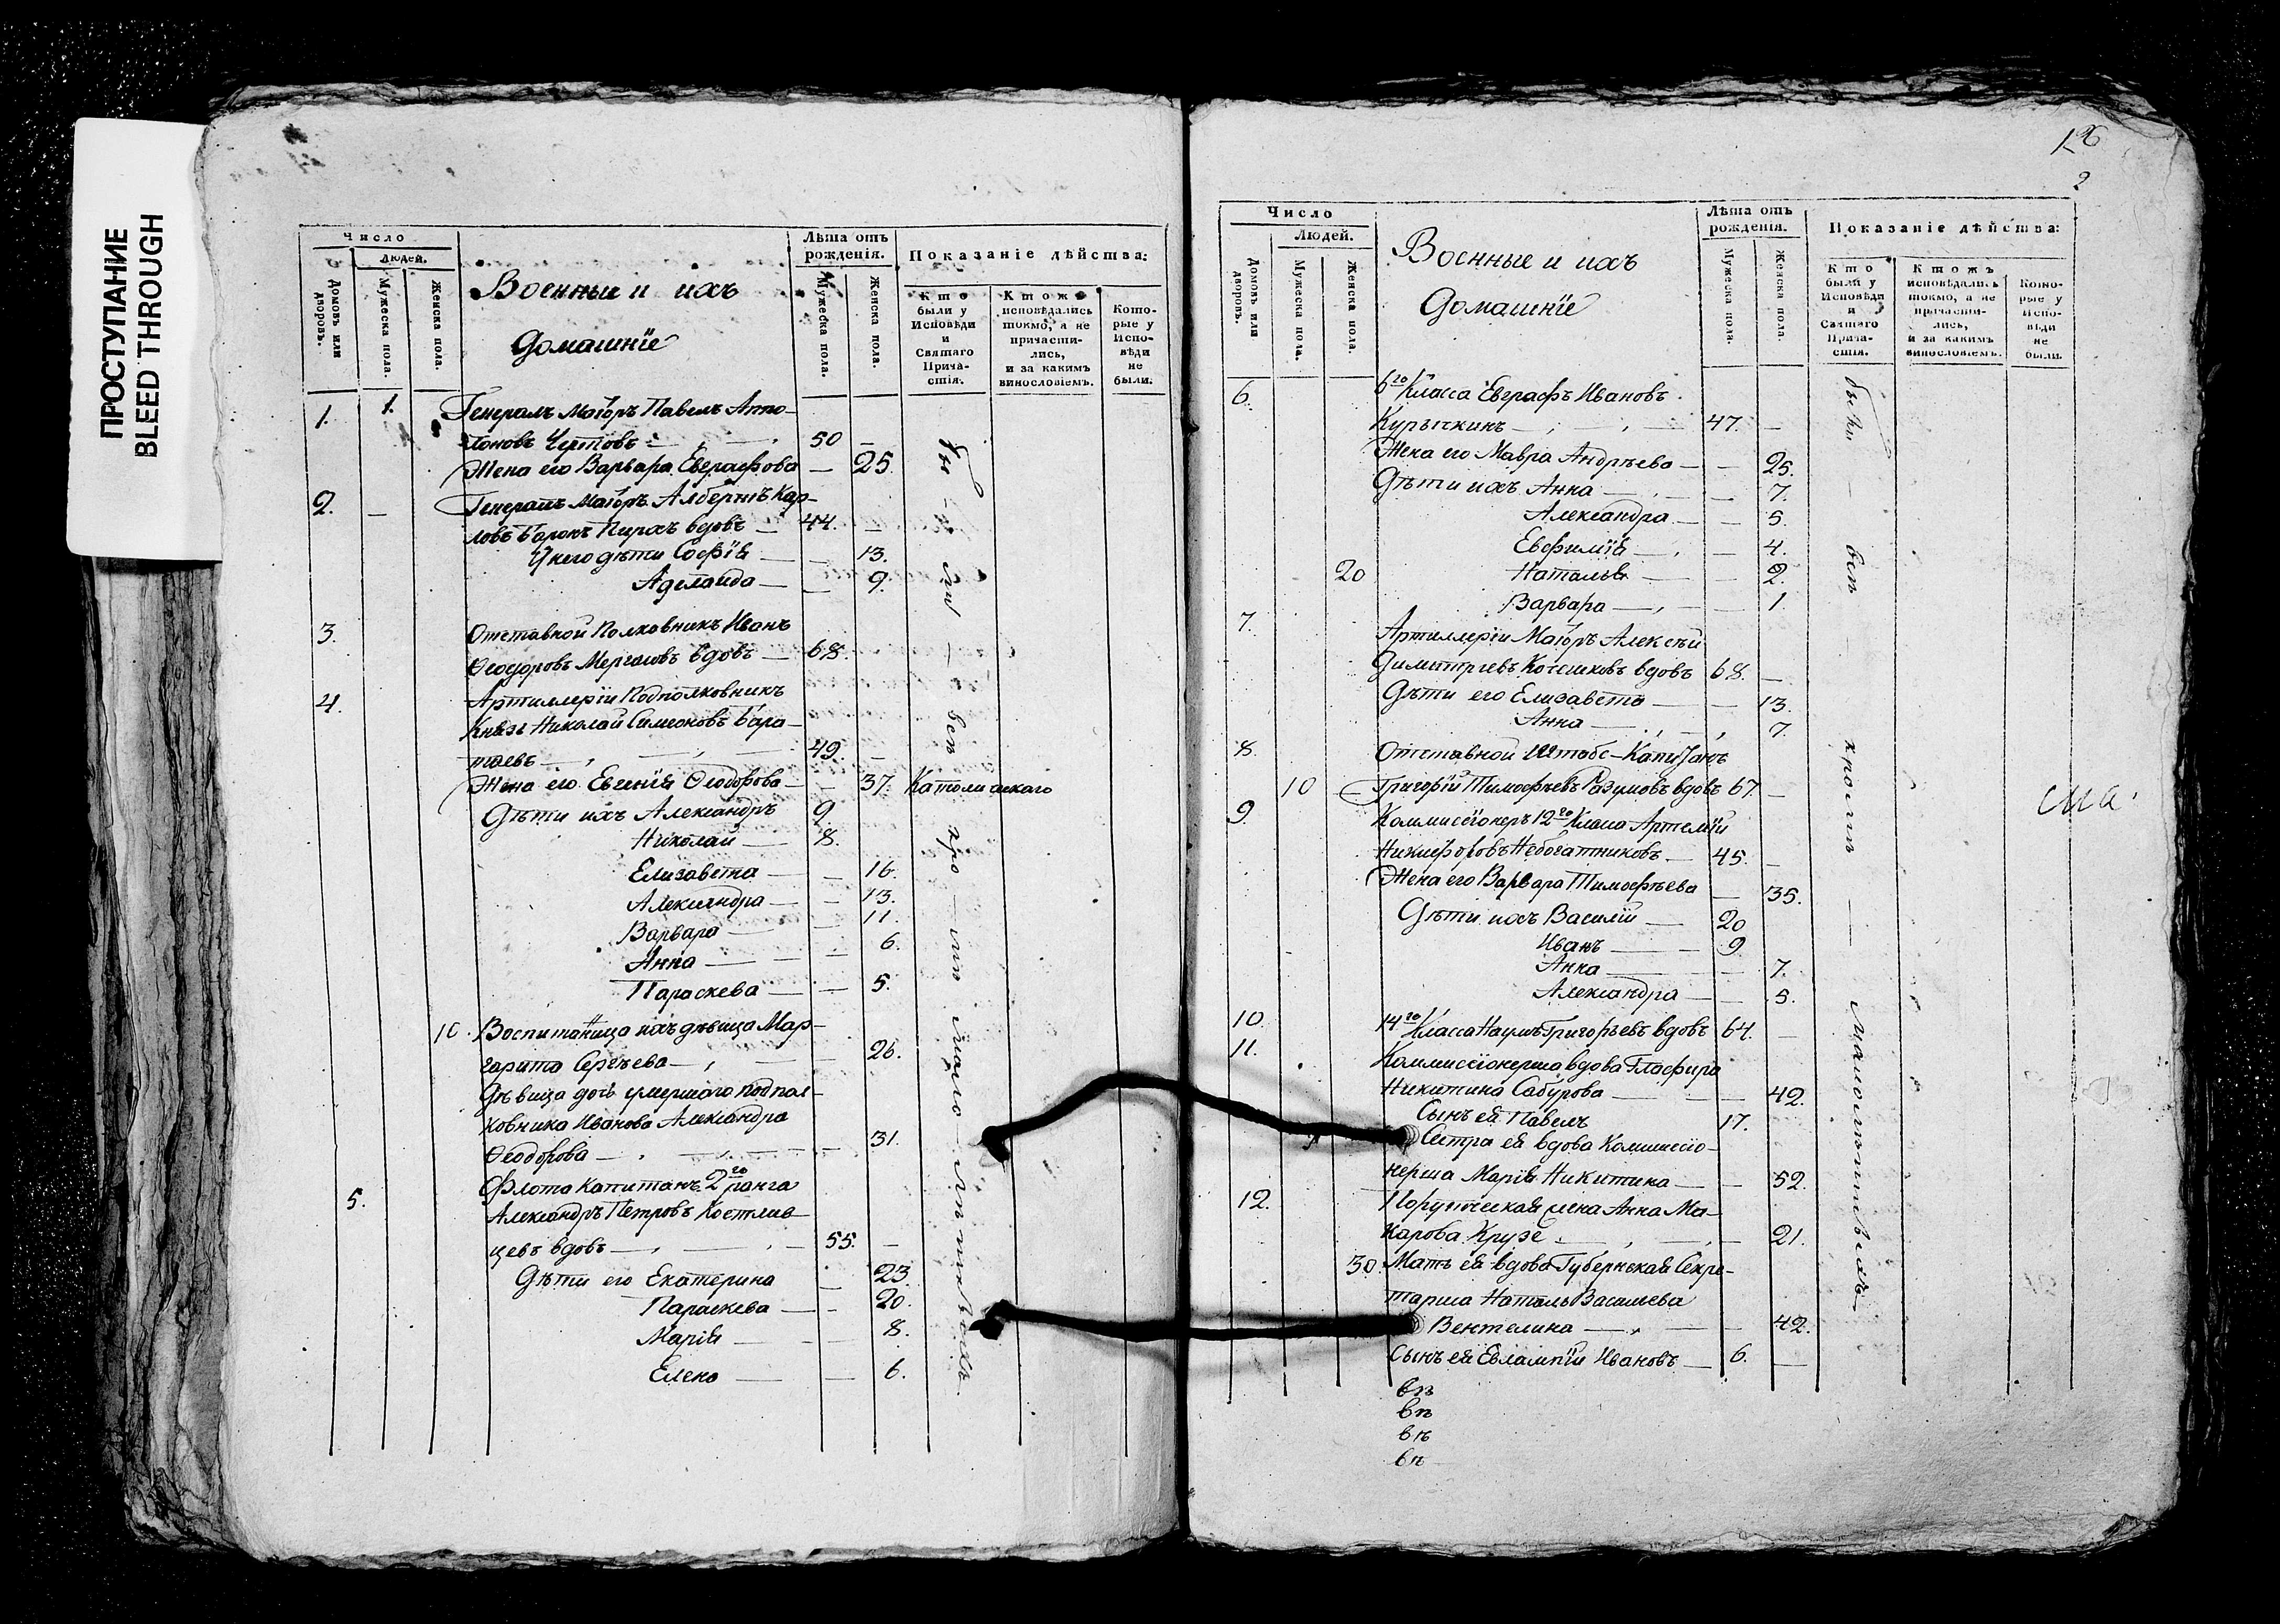 ПРОСТУПАНИЕ
BLEED THROUGH
Число
Людей.
Домовъ или дворовъ.
Мужеска пола.
Женска пола.
Военныи и ихъ
домашнїе
Лѣта отъ рожденія.
Мужеска пола.
Женска пола.
Показаніе дѣйства:
Кто были у Исповѣди и Святаго Прича-стія.
Ктожъ исповѣдались токмо, а не причасти-лись, и за какимъ винословіемъ.
Кото-рые у Испо-вѣди не были.
1. 1. Генералъ Маіоръ Павелъ Апо-
лоновъ Чертовъ 50 —
Жена его Варвара Евграфова — 25.
2. — Генералъ Маіоръ Албертъ Кар-
ловъ Баронъ Пирхъ вдовъ — 44. —
У него дѣти Софїя — 13.
Аделаида — 9.
3. Отставной Полковникъ Иванъ
Ѳеодоровъ вдовъ — 68.
4. Артиллерїи Подполковникъ
Князь Николай Симеоновъ Бара-
таевъ — 49. —
Жена его Евгенїя Ѳеодорова — 37. Католическаго
Дѣти ихъ Александръ 9.
Николай — 8.
Елизавета — 16.
Александра — 13.
Варвара — 11.
Анна — 6.
Параскева — 5.
10. Воспитаница ихъ дѣвица Мар-
гарита Сергѣева — 26.
Дѣвица дочь умершаго подпол-
ковника Иванова Александра
Ѳеодорова — 31.
5. Флота Капитанъ 2го ранга
Александръ Петровъ Костлив-
цевъ вдовъ — 55. —
Дѣти его Екатерина — 23.
Параскева — 20.
Марїя — 8.
Елена — 6.
бы — ли — всѣ кро — мѣ мало — лѣтнѣихъ
2
Число
Людей.
Домовъ или дворовъ.
Мужеска пола.
Женска пола.
Военныи и ихъ
домашнїе
Лѣта отъ рожденія.
Мужеска пола.
Женска пола.
Показаніе дѣйства:
Кто были у Исповѣди и Святаго Прича-стія.
Ктожъ исповѣдались токмо, а не причасти-лись, и за какимъ винословіемъ.
Кото-рые у Испо-вѣди не были.
6. 6го Класса Евграфъ Ивановъ
Курычкинъ — 47. —
Жена его Мавра Андрѣева — 25.
Дѣти ихъ Анна — 7.
Александра — 5.
Евфимїя — 4.
20 Наталья — 2.
Варвара — 1.
7. Артиллерїи Маіоръ Алексѣй
Димитрїевъ вдовъ 68. —
Дѣти его Елизавета — 13.
Анна — 7.
8. Отставной Штабс-Капитанъ
10 Григорїй Тимофѣевъ Разумовъ вдовъ 67. —
9. Коммисїонеръ 12го Класа Артемїй
Никифоровъ Небогатиковъ — 45. —
Жена его Варвара Тимофѣева — 35.
Дѣти ихъ Василїй — 20
Иванъ — 9.
Анна — 7.
Александра — 5.
10. 14го Класса Наумъ Григорьевъ вдовъ 64. —
11. Коммиссїонерша вдова Глафира
Никитина Сабурова — 42.
Сынъ ея Павелъ 17.
Сестра ея вдова Коммиссіо-
нерша Марїя Никитина — 52.
12. Порутическая жена Анна Ма-
карова Крузе — 21.
30. Мать ея вдова Губернская Секре-
тарша Наталья Васильева
Вентелина — 42.
Сынъ ея Евлампїй Ивановъ — 6. —
были — всѣ — кромѣ — малолѣтнѣихъ —